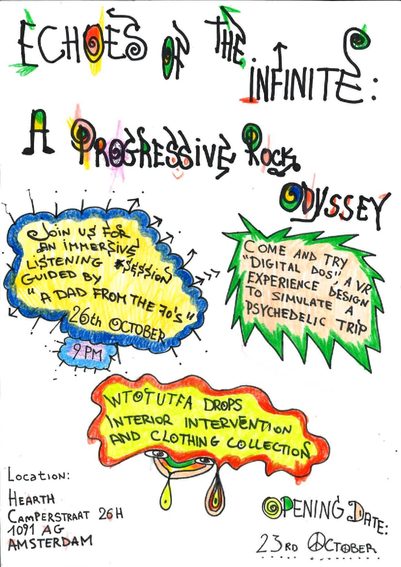 ECHOES OF THE INFINITE:
A PROGRESSIVE ROCK
ODYSSEY
JOIN US FOR
AN IMMERSIVE
LISTENING SESSION
GUIDED BY
"A DAD FROM THE 70's"
26th OCTOBER
9 PM
COME AND TRY
"DIGITAL DOS" A VR
EXPERIENCE DESIGN
TO SIMULATE A
PSYCHEDELIC TRIP
WTOTUTFA DROPS
INTERIOR INTERVENTION
AND CLOTHING COLLECTION
Location:
HEARTH
CAMPERSTRAAT 26H
1091 AG
AMSTERDAM
OPENING DATE:
23RD OCTOBER